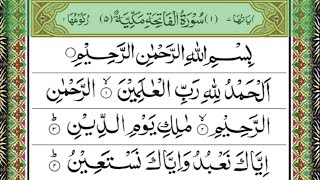 اٰيَاتُهَا ٧ (١) سُوْرَةُ الْفَاتِحَةِ مَكِّيَّةٌ (٥) رُكُوْعُهَا ١
بِسْمِ اللّٰهِ الرَّحْمٰنِ الرَّحِيْمِ
اَلْحَمْدُ لِلّٰهِ رَبِّ الْعٰلَمِيْنَ ۙ﴿۱﴾
الرَّحِيْمِ ۙ﴿۲﴾ مٰلِكِ يَوْمِ الدِّيْنِ ؕ﴿۳﴾
اِيَّاكَ نَعْبُدُ وَاِيَّاكَ نَسْتَعِيْنُ ؕ﴿۴﴾